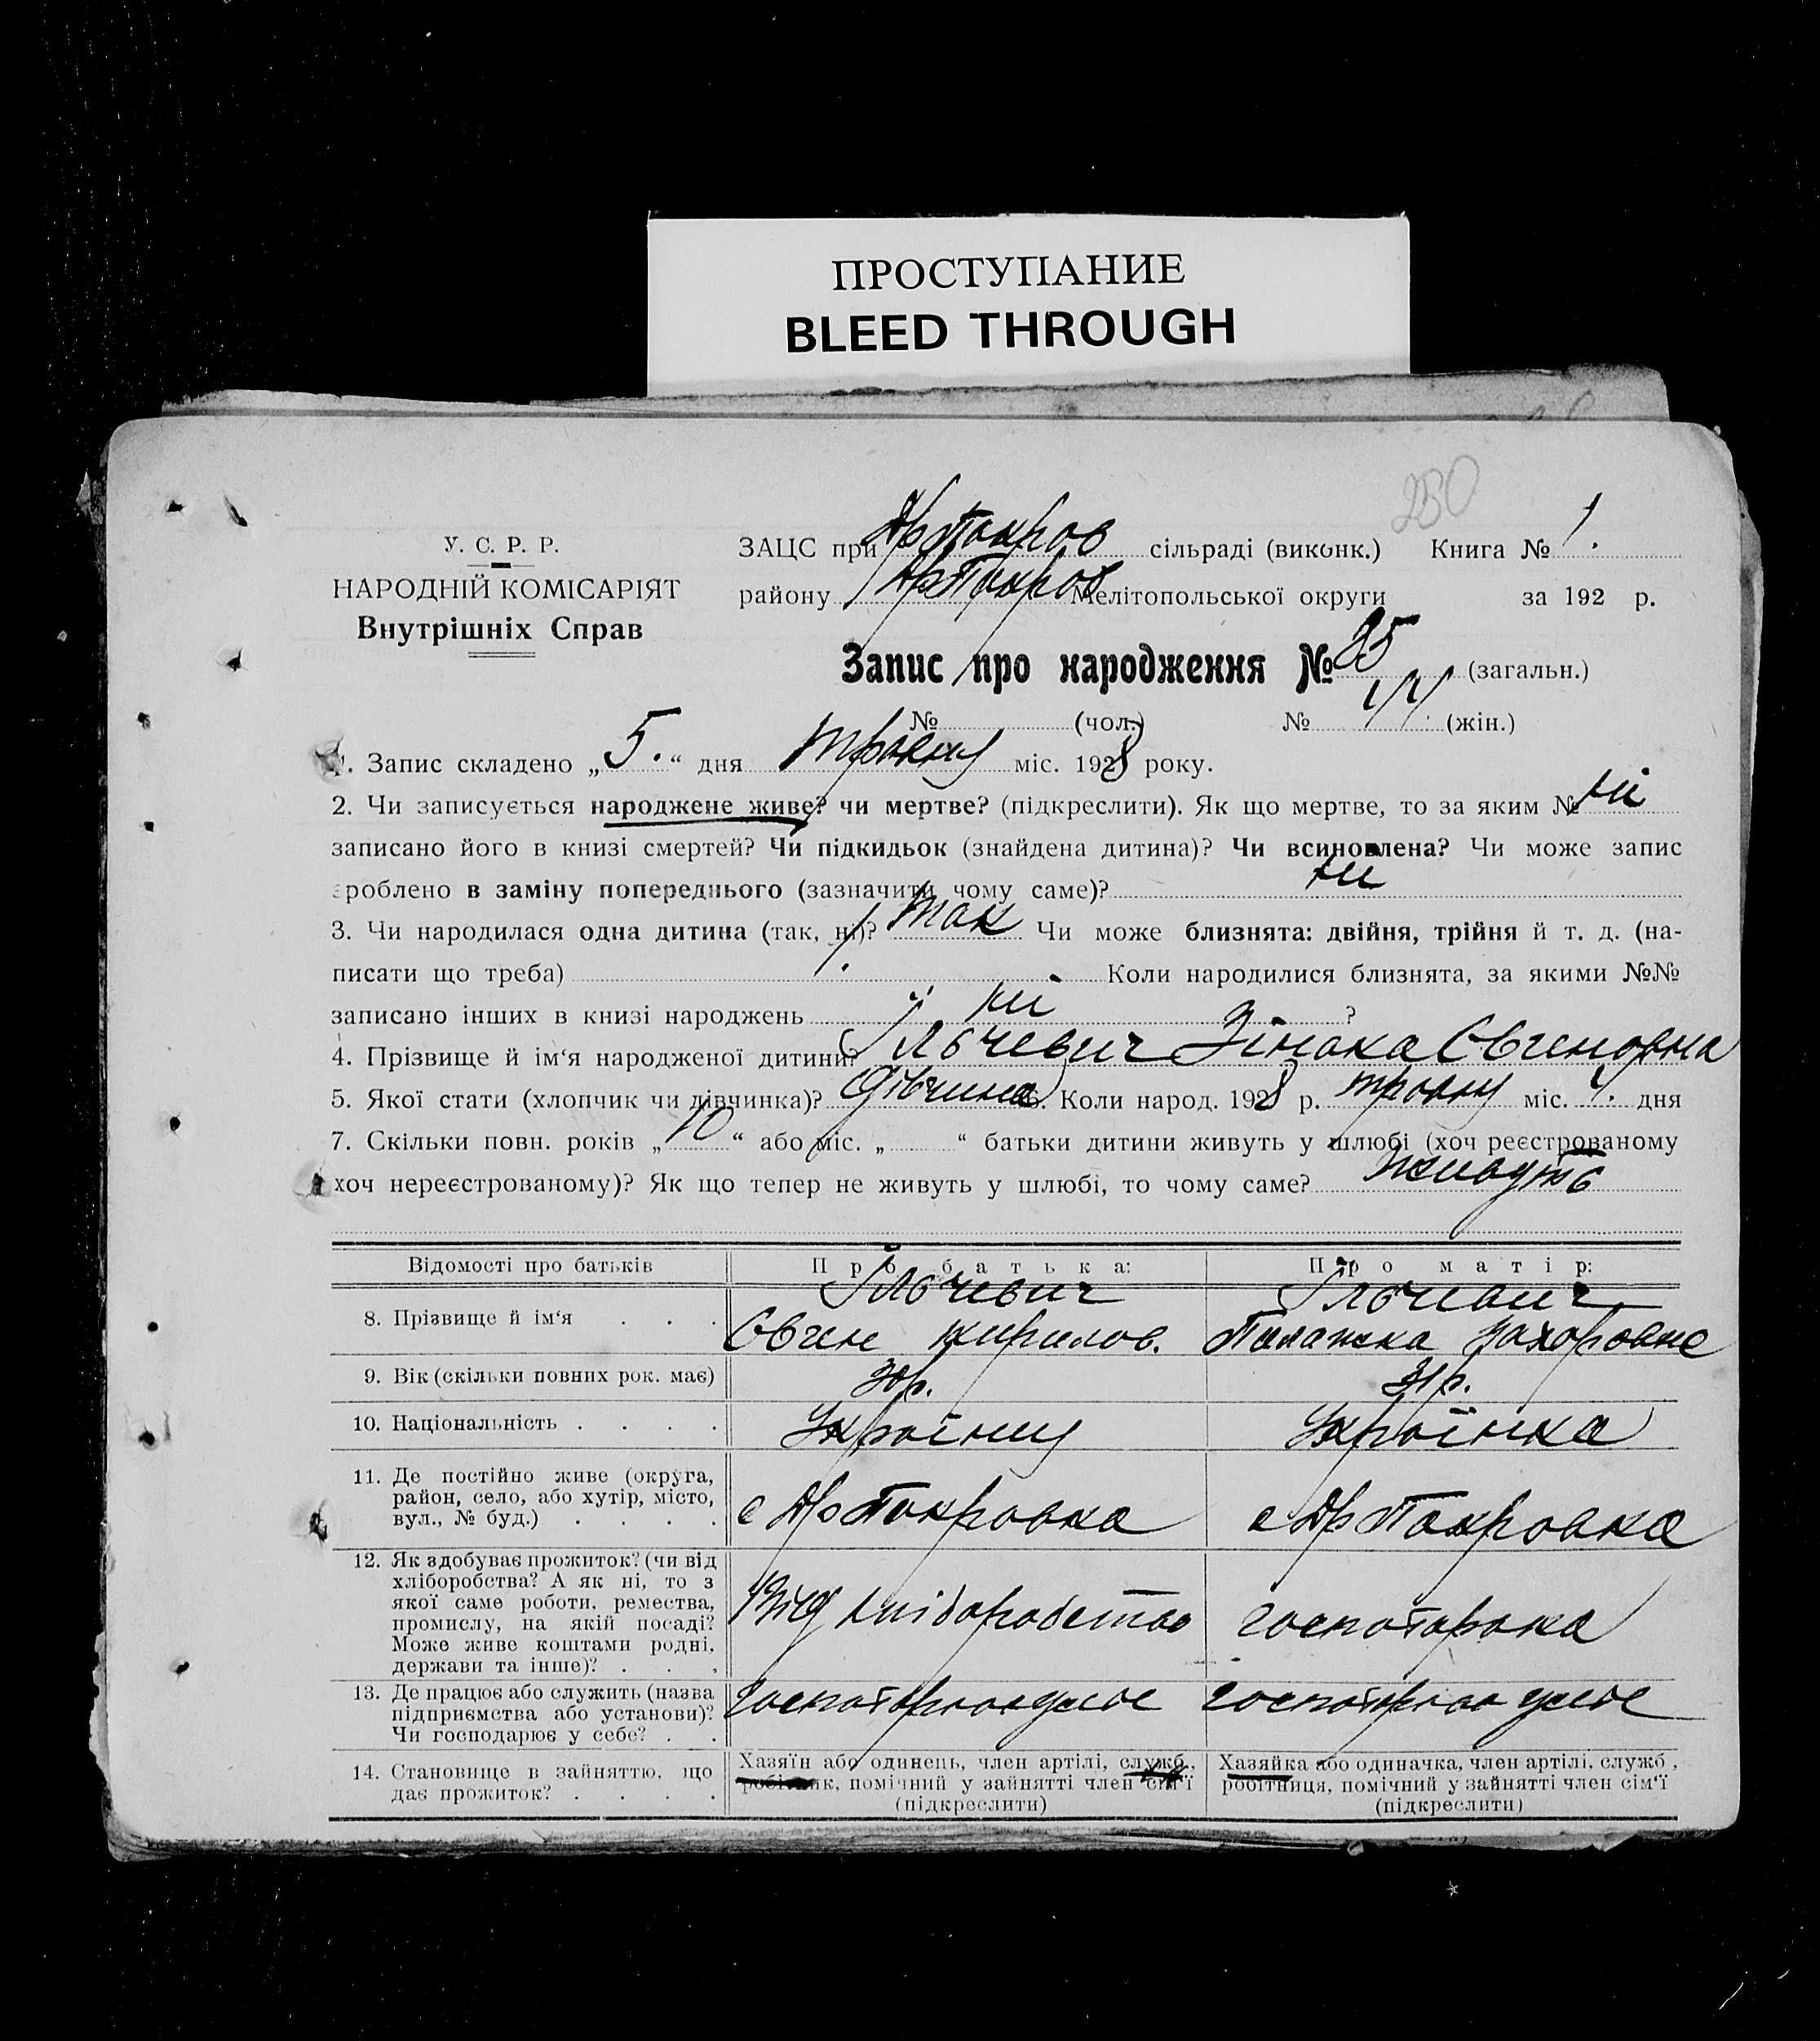 ПРОСТУПАНИЕ
BLEED THROUGH
250
У. С. Р. Р.
НАРОДНІЙ КОМІСАРІЯТ
Внутрішніх Справ
ЗАЦС при Нр Покров сільраді (виконк.) Книга № 1.
району Нр Покров Мелітопольської округи за 192 р.
Запис про народження № (загальн.)
№ (чол.) № (жін.)
1. Запис складено „5.“ дня травня міс. 1928 року.
2. Чи записується народжене живе? чи мертве? (підкреслити). Як що мертве, то за яким № ні
записано його в книзі смертей? Чи підкидьок (знайдена дитина)? Чи всиновлена? Чи може запис
зроблено в заміну попереднього (зазначити чому саме)? ні
3. Чи народилася одна дитина (так, ні)? так Чи може близнята: двійня, трійня й т. д. (на-
писати що треба) Коли народилися близнята, за якими №№
записано інших в книзі народжень ні ?
4. Прізвище й ім‘я народженої дитини? Ільчевич Зінака Євгеновна
5. Якої стати (хлопчик чи дівчинка)? дівчина 6. Коли народ. 1928 р. травня міс. 4. дня
7. Скільки повн. років „10“ або міс. „ “ батьки дитини живуть у шлюбі (хоч реєстрованому
хоч нереєстрованому)? Як що тепер не живуть у шлюбі, то чому саме? живуть
Відомості про батьків Про батька: Про матір:
8. Прізвище й ім‘я . . . Ільчевич Євген Кирилов. Ільчевич Палажка Захаровна
9. Вік (скільки повних рок. має) 31р.
10. Національність . . . . Українец Українка
11. Де постійно живе (округа,
район, село, або хутір, місто,
вул., № буд.) . . . . с Нр Покровка с Нр Покровка
12. Як здобуває прожиток? (чи від
хліборобства? А як ні, то з
якої саме роботи, ремества,
промислу, на якій посаді?
Може живе коштами родні,
держави та інше)? . . . Від хліборобства господарка
13. Де працює або служить (назва
підприємства або установи)?
Чи господарює у себе? . .
14. Становище в зайняттю, що
дає прожиток? . . . .
Хазяїн або одинець, член артілі, служб.,
робітник, помічний у зайнятті член сім‘ї
(підкреслити)
Хазяйка або одиначка, член артілі, служб.,
робітниця, помічний у зайнятті член сім‘ї
(підкреслити)